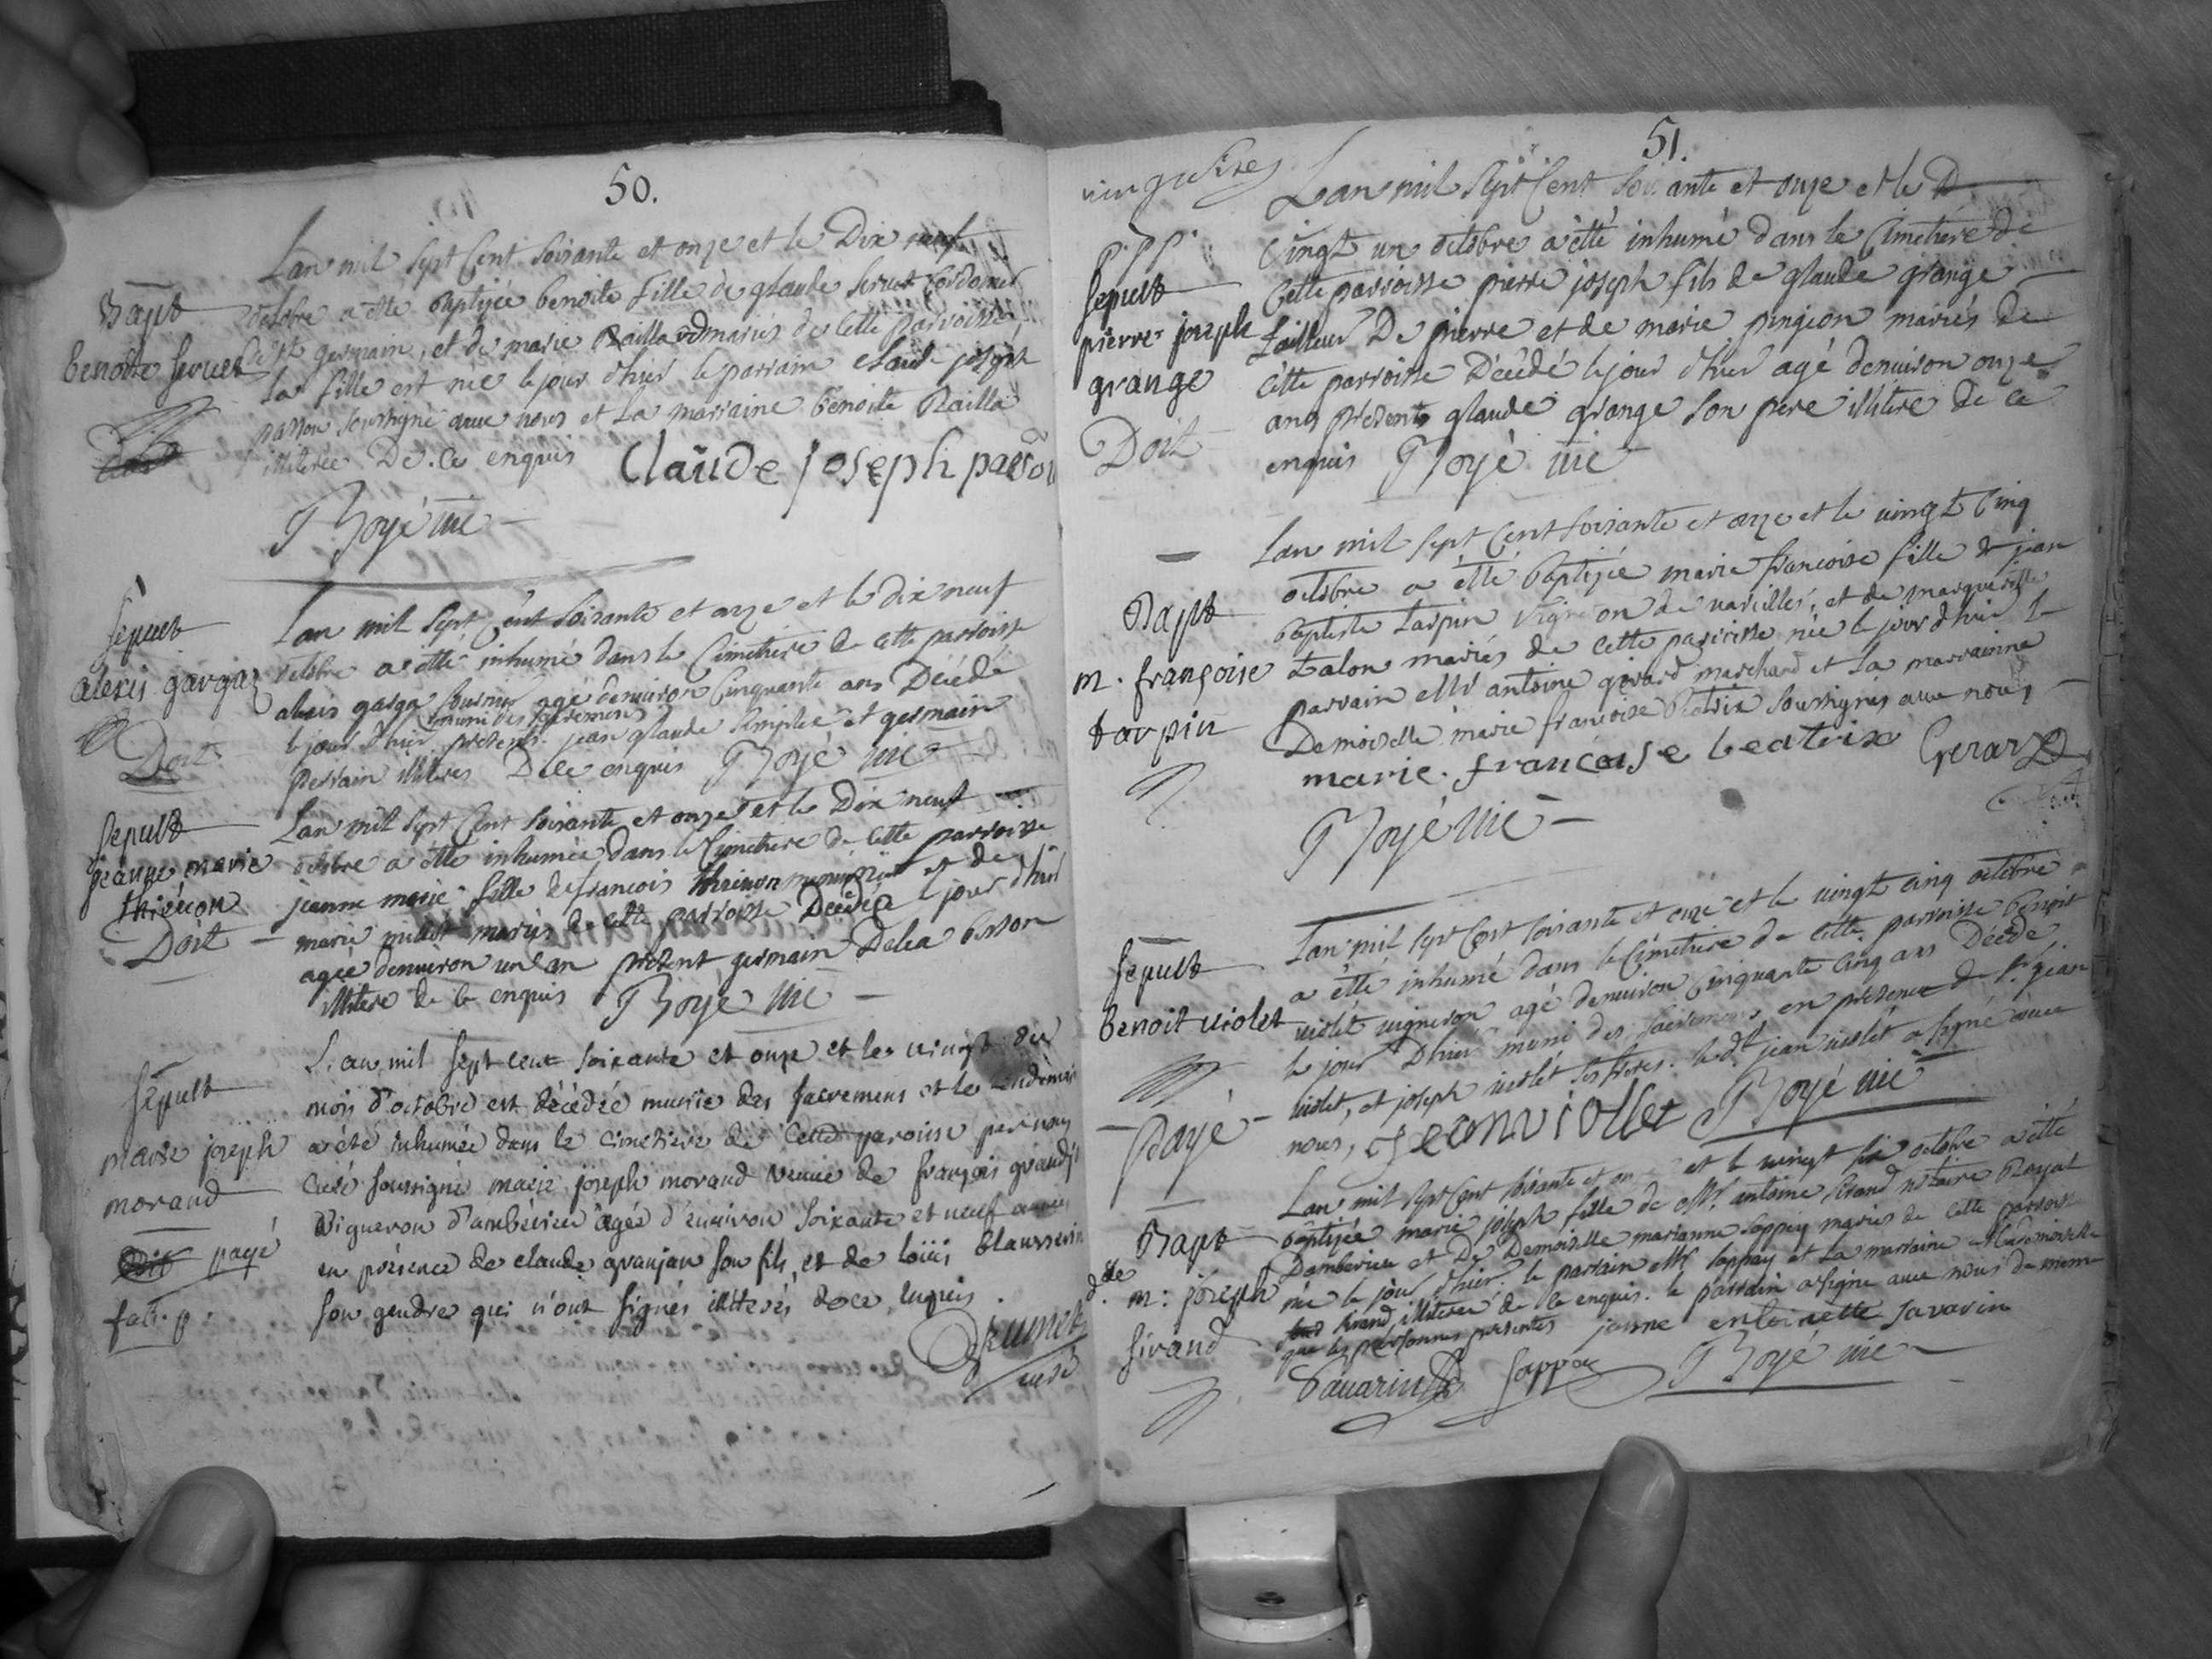 50.
Lan mil sept Cent soixante et onze et le Dix neuf
Bapt
octobre a été baptizée benoite fille de glaude servet Cordonier
benoite servet
de st germain, et de marie Raillard mariés de cette parroisse,
la fille est née le jour d'hier le parrain claude joseph
passou soussigné avec nous et la marraine benoite Railla
illiterée De ce enquis Claude joseph passou
Boyé vic
Sepult
Lan mil sept Cent soixante et onze et le dix neuf
octobre a été inhumé dans le Cimetiere de cette parroisse
alexis gargaz
alexis garga agé denviron Cinquante ans Décédé
muni des sacremens
le jour d'hier presents jean glaude et germain
Doit
perrain illiteres De ce enquis Boyé vic
Sepult
Lan mil sept Cent soixante et onze et le Dix neuf
jeanne marie
octobre a été inhumée dans le Cimetiere de cette parroisse
thrénon
jeanne marie fille de francois et de
marie millet mariés de cette parroisse Décédée le jour d'hier
Doit
agée denviron un an present germain Dela
illitere de ce enquis Boyé vic
L'an mil sept cent soixante et onze et le vingt du
Sépult
mois d'octobre est décédée munie des sacremens et le lendemain
marie joseph
a été inhumée dans le cimetiere de cette paroisse par nous
morand
curé soussigné marie joseph morand veuve de françois grandj
vigneron d'ambérieu agée d'environ soixante et neuf années
payé
en présence de claude granjan son fils, et de loüis
son gendre qui n'ont signés illiterés de ce enquis.
fab. p.
curé
51.
Lan mil sept Cent soixante et onze et le
vingt un octobre a été inhumé dans le Cimetiere de
Sepult
cette parroisse pierre joseph fils de glaude grange
pierre joseph
tailleur De pierre et de marie pingeon mariés de
grange
cette parroisse Décédé le jour d'hier agé denviron onze
ans presents glaude grange son pere illitere de ce
Doit
enquis Boyé vic
Lan mil sept Cent soixante et onze et le vingt Cinq
octobre a été baptizée marie francoise fille de jean
Bapt
baptiste tarpin Vigneron de vareilles, et de marguerite
m. françoise
talon mariés de cette parroisse née le jour d'hier le
tarpin
parrain antoine girard marchand et la marrainne
Demoiselle marie francoise Béatrix soussignés avec nous
marie. francoise beatrix Gerard
Boyé vic
Lan mil sept Cent soixante et onze et le vingt cinq octobre
Sepult
a été inhumé dans le Cimetiere de cette parroisse benoit
benoit violet
violet vigneron agé denviron Cinquante cinq ans Décédé
le jour D'hier muni des sacremens, en presence de Sr. jean
violet, et joseph violet ses freres. le dt jean violet a signé avec
Payé
nous, jeanviollet Boyé vic
Lan mil sept Cent soixante et onze et le vingt six octobre a été
Bapt
baptizée marie joseph fille de antoine Sirand notaire Royal
Damberieu et De Demoiselle marianne Sappey mariés de cette parroisse
dlle m: joseph
née le jour d'hier. le parrain Sappey et la marraine Mademoiselle
Sirand
Sirand, illiterée de ce enquis. le parrain a signé avec nous de meme
que les personnes presentes jeanne entoinette Savarin
Savarin Sappey Boyé vic